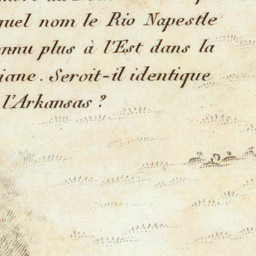 quel nom le Rio Napestle
nnu plus à l'Est dans la
iane. Seroit-il identique
l'Arkansas ?